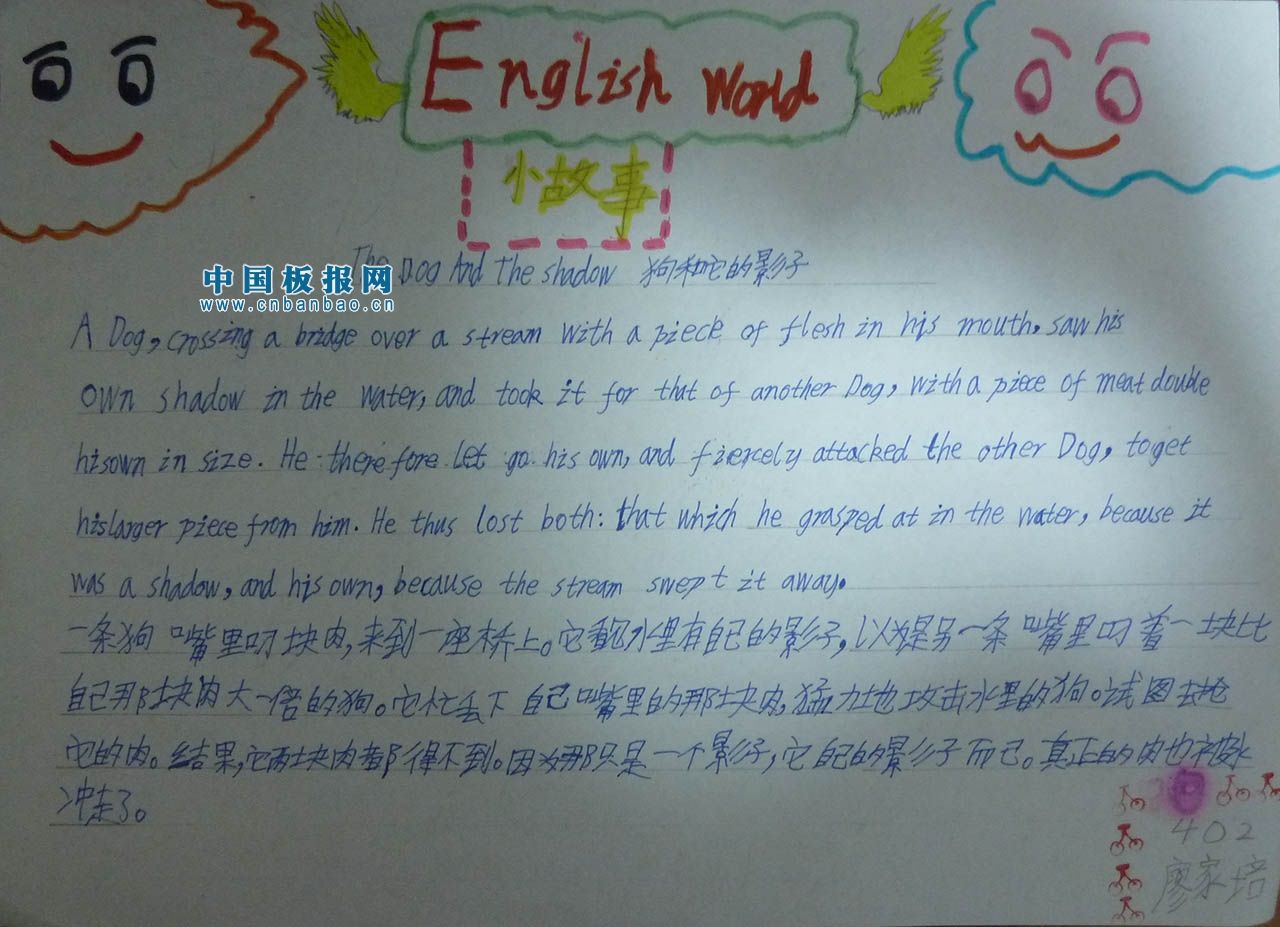 English World
小故事
The Dog And The shadow 狗和它的影子
中国板报网
www.cnbanbao.cn
A Dog, crossing a bridge over a stream with a piece of flesh in his mouth, saw his
own shadow in the water, and took it for that of another Dog, with a piece of meat double
hisown in size. He therefore let go his own, and fiercely attacked the other Dog, toget
hislarger piece from him. He thus lost both: that which he grasped at in the water, because it
was a shadow, and his own, because the stream swept it away.
一条狗嘴里叼块肉,来到一座桥上。它看见水里有自己的影子,以为是另一条嘴里叼着一块比
自己那块肉大一倍的狗。它忙丢下自己嘴里的那块肉,猛力地攻击水里的狗。试图去抢
它的肉。结果,它两块肉都得不到。因为那只是一个影子,它自己的影子而已。真正的肉也被水
冲走了。
402
廖家培